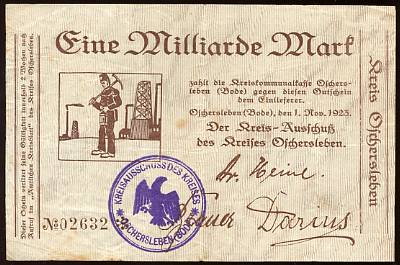 Eine Milliarde Mark
zahlt die Kreiskommunalkasse Oschers-
leben (Bode) gegen diesen Gutschein
dem Einlieferer.
Oschersleben (Bode), den 1. Nov. 1923.
Der Kreis-Ausschuß
des Kreises Oschersleben.
Dr. Heine.
Darius
№02632
KREISAUSSCHUSS DES KREISES
OSCHERSLEBEN (BODE)
Dieser Schein verliert seine Gültigkeit innerhalb 2 Wochen nach
Aufruf im „Amtlichen Kreisblatt" des Kreises Oschersleben.
Kreis Oschersleben